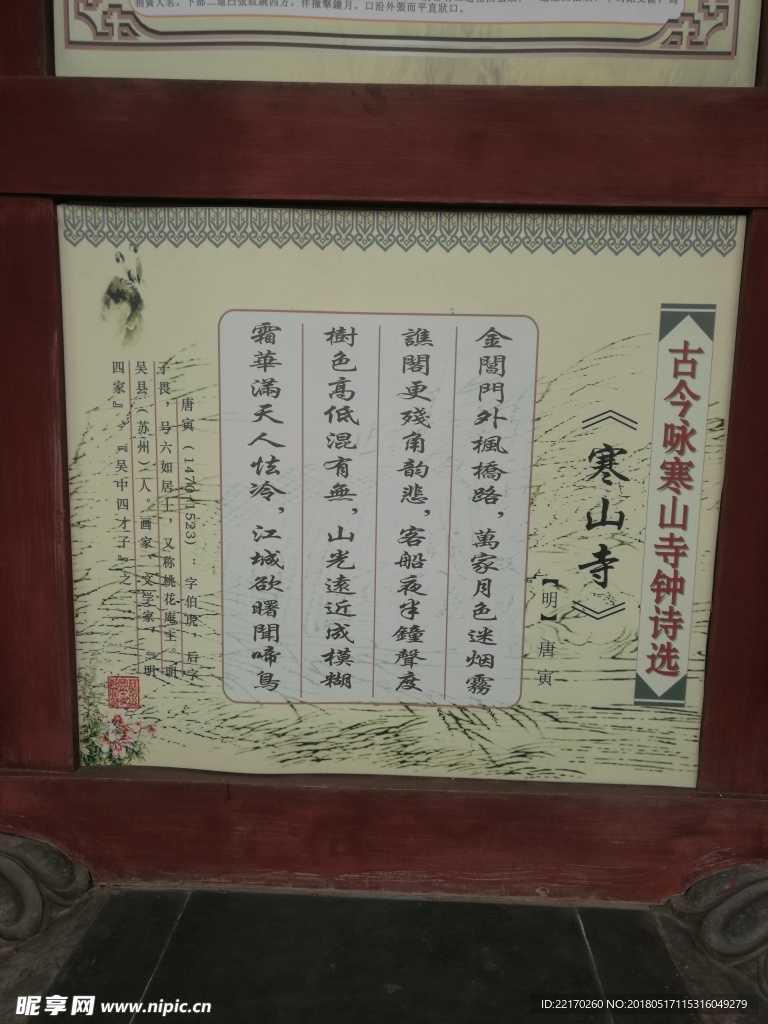 捐資人名。下部二道凸弦紋繞四方，作撞擊鐘月。口沿外張而平直狀口。
古今咏寒山寺钟诗选
《寒山寺》
【明】唐寅
金閶門外楓橋路，萬家月色迷烟霧
譙閣更殘角韵悲，客船夜半鐘聲度
樹色高低混有無，山光遠近成模糊
霜華滿天人怯冷，江城欲曙聞啼烏
唐寅（1470-1523）：字伯虎，后字
子畏，号六如居士，又称桃花庵主。明
吴县（苏州）人。画家、文学家，『明
四家』、『吴中四才子』之
昵享网 www.nipic.cn
ID:22170260 NO:20180517115316049279